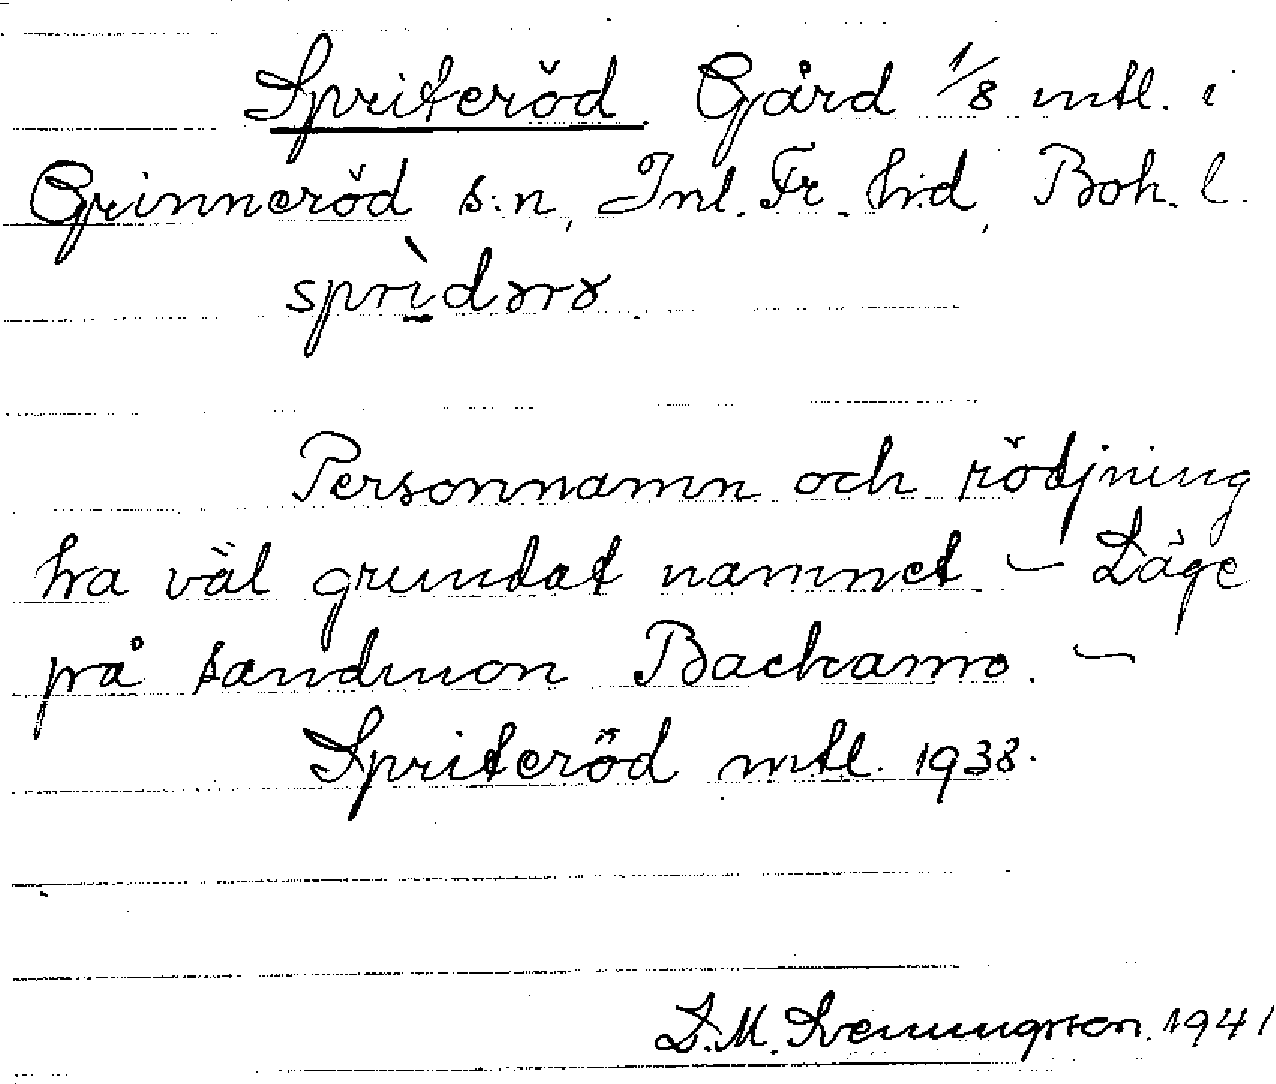 Spriteröd Gård 1/8 mtl. i
Grinneröd s:n, Inl. Fr. hd, Boh. l.
sprìdərə
Personnamn och rödjning
ha väl grundat namnet – Läge
på sandmon Backamo. –
Spriteröd mtl. 1938.
S.M. Svenungsson. 1941